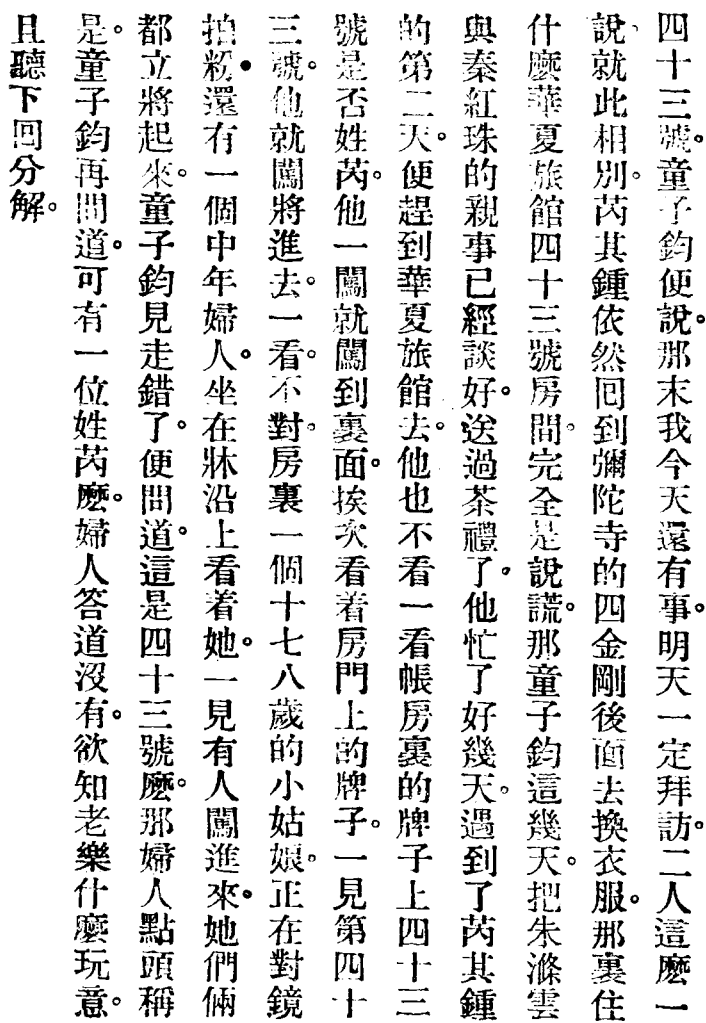 四十三號。童子鈞便說。那末我今天還有事。明天一定拜訪。二人這麽一
說、就此相別。芮其鍾依然回到彌陀寺的四金剛後面去換衣服。那裏住
什麽華夏旅館四十三號房間。完全是說謊。那童子鈞這幾天。把朱滌雲
與秦紅珠的親事已經談好。送過茶禮了。他忙了好幾天。遇到了芮其鍾
的第二天。便趕到華夏旅館去。他也不看一看帳房裏的牌子上四十三
號是否姓芮。他一闖就闖到裏面。挨次看着房門上的牌子。一見第四十
三號。他就闖將進去。一看。不對。房裏一個十七八歲的小姑娘。正在對鏡
拍粉。還有一個中年婦人。坐在牀沿上看着她。一見有人闖進來。她們倆
都立將起來。童子鈞見走錯了。便問道。這是四十三號麽。那婦人點頭稱
是。童子鈞再問道。可有一位姓芮麽。婦人答道沒有。欲知老樂什麽玩意。
且聽下回分解。